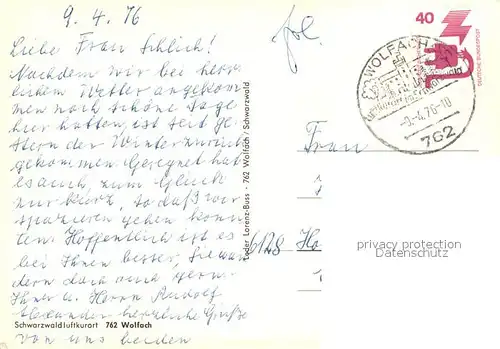 9.4.76
Liebe Frau Schlich!
Nachdem wir bei herr
lichem Wetter angekom
men noch schöne Tage
hier hatten, ist seit ge
stern der Winter zurück
gekommen. Geregnet hat
es auch, zum Glück
nur kurz, so daß wir
spazieren gehen konn
ten. Hoffentlich ist es
bei Ihnen besser, Sie wan
dern doch auch gern.
Ihnen u. Herrn Rudolf
Alexander herzliche Grüße
von uns beiden
Schwarzwaldluftkurort 762 Wolfach
Leder Lorenz-Buss · 762 Wolfach / Schwarzwald
40
DEUTSCHE BUNDESPOST
WOLFACH
-9.-4.76-10
762
Frau
6128 Hö
privacy protection
Datenschutz